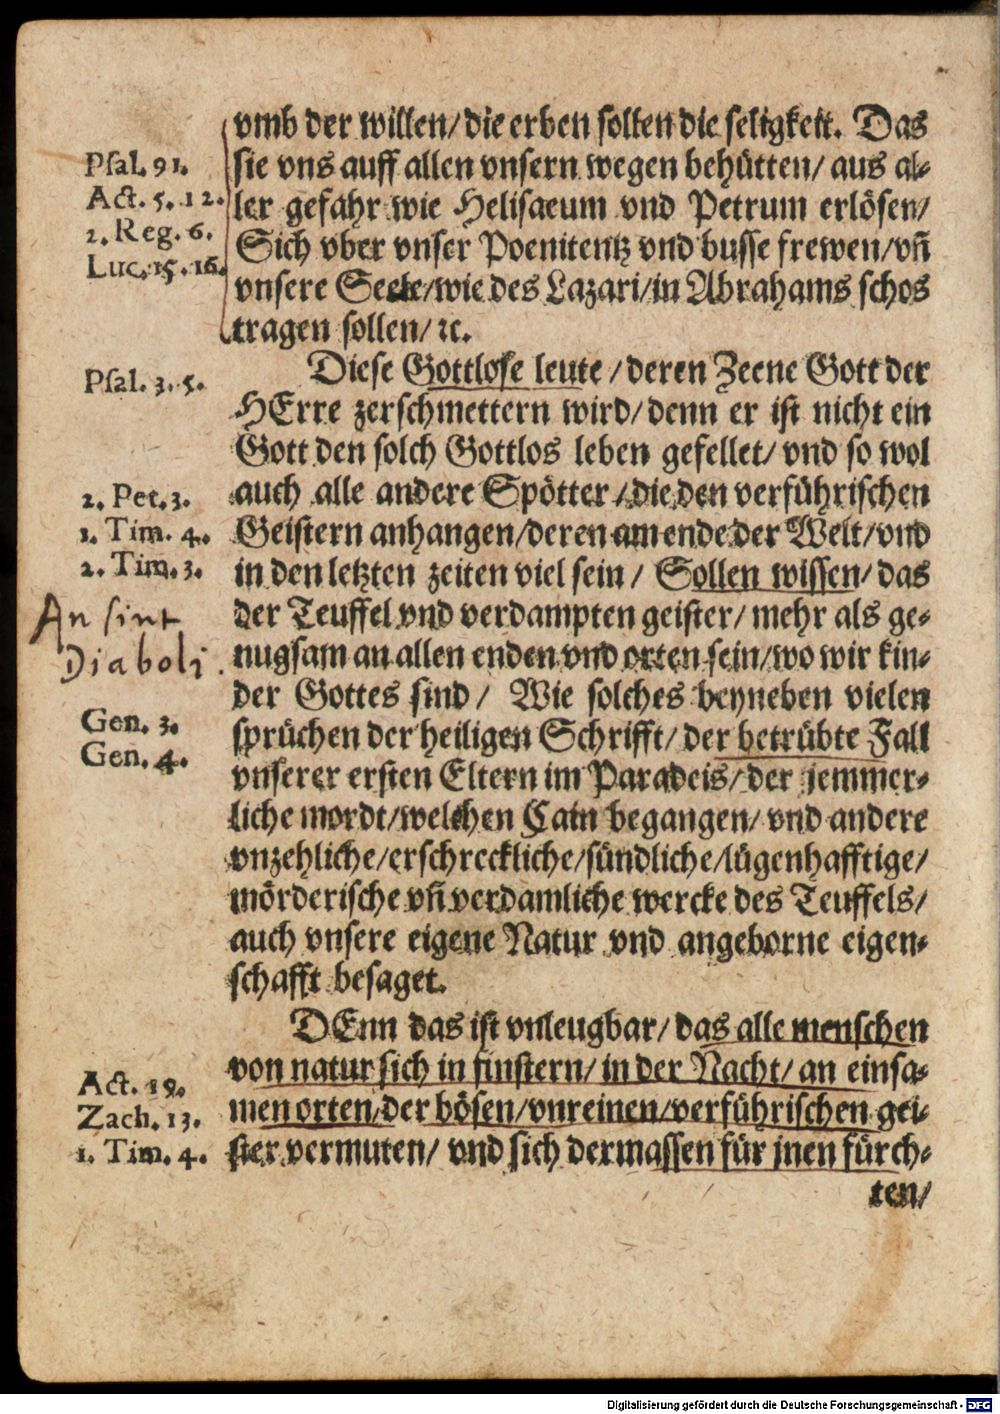 vmb der willen/ die erben solten die seligkeit. Das
Psal. 91. sie vns auff allen vnsern wegen behütten/ aus al-
Act. 5. 12. ler gefahr wie Helisaeum vnd Petrum erlösen/
2. Reg. 6. Sich vber vnser Poenitentz vnd busse frewen/ vñ
Luc. 15. 16. vnsere Seele/ wie des Lazari/ in Abrahams schos
tragen sollen/ ꝛc.
Psal. 3. 5. Diese Gottlose leute / deren Zeene Gott der
HErre zerschmettern wird/ denn er ist nicht ein
Gott den solch Gottlos leben gefellet/ vnd so wol
2. Pet. 3. auch alle andere Spötter / die den verführischen
1. Tim. 4. Geistern anhangen/ deren am ende der Welt/ vnd
2. Tim. 3. in den letzten zeiten viel sein / Sollen wissen/ das
An sint der Teuffel vnd verdampten geister/ mehr als ge-
Diaboli. nugsam an allen enden vnd orten sein/ wo wir kin-
der Gottes sind / Wie solches beyneben vielen
Gen. 3. sprüchen der heiligen Schrifft/ der betrübte Fall
Gen. 4. vnserer ersten Eltern im Paradeis/ der jemmer-
liche mordt/ welchen Cain begangen/ vnd andere
vnzehliche/ erschreckliche/ sündliche/ lügenhafftige/
mörderische vñ verdamliche wercke des Teuffels/
auch vnsere eigene Natur vnd angeborne eigen-
schafft besaget.
DEnn das ist vnleugbar/ das alle menschen
Act. 19. von natur sich in finstern/ in der Nacht/ an einsa-
Zach. 13. men orten/ der bösen/ vnreinen/ verführischen gei-
1. Tim. 4. ster vermuten/ vnd sich dermassen für jnen fürch-
ten/
Digitalisierung gefördert durch die Deutsche Forschungsgemeinschaft - DFG